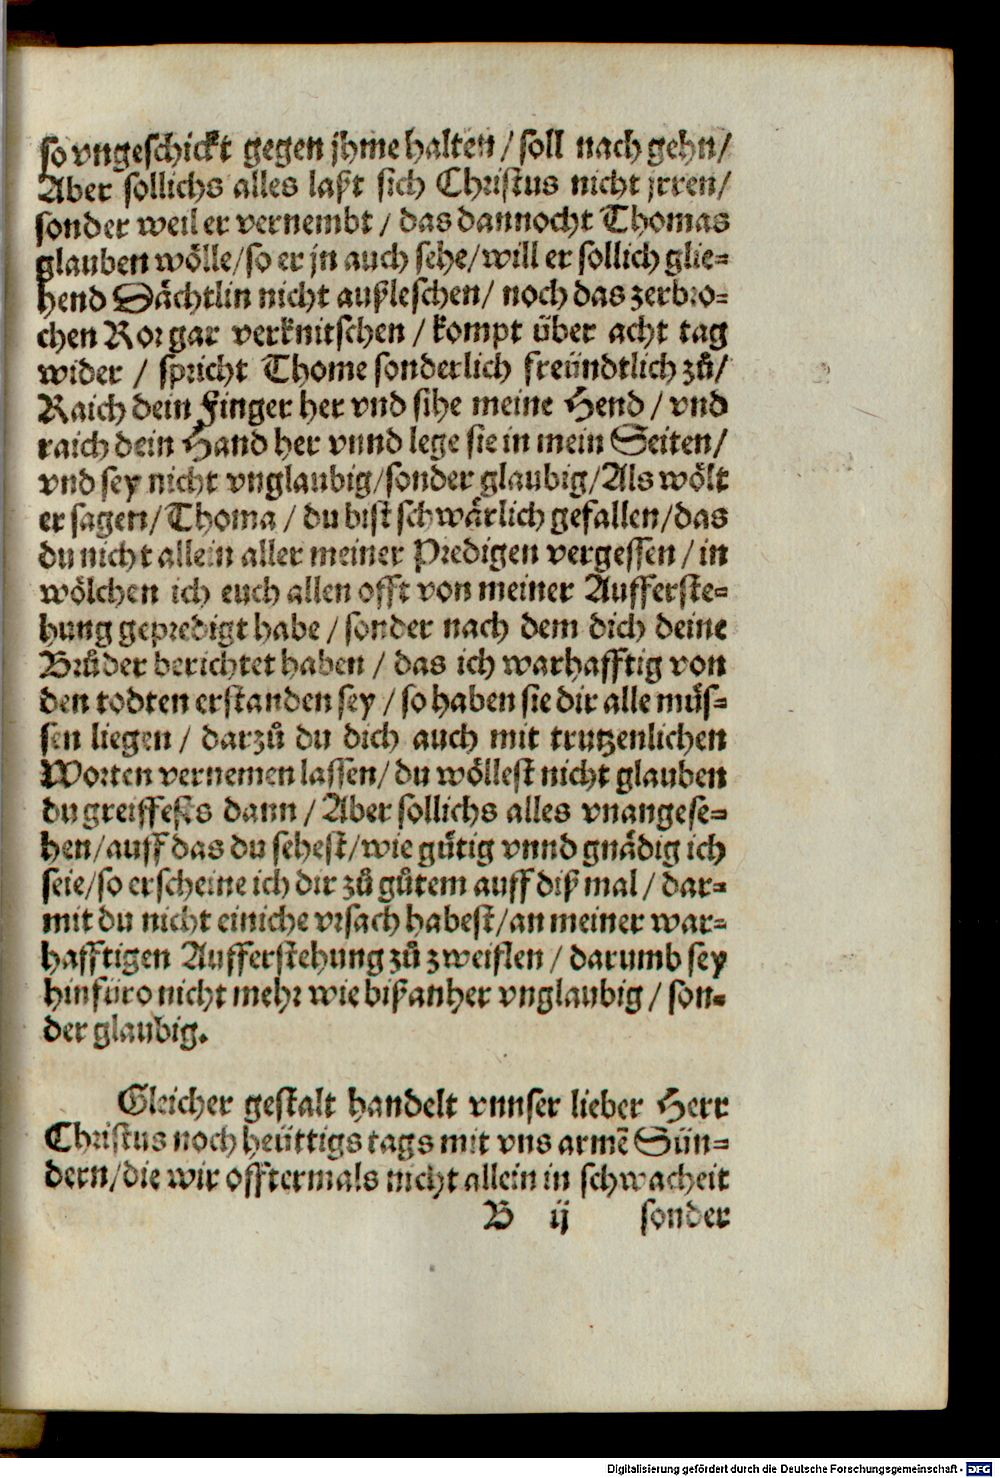 so vngeschickt gegen jhme halten / soll nach gehn /
Aber sollichs alles laßt sich Christus nicht jrren /
sonder weil er vernembt / das dannocht Thomas
glauben wölle / so er jn auch sehe / will er sollich glie=
hend Dächtlin nicht außleschen / noch das zerbro=
chen Ror gar verknitschen / kompt über acht tag
wider / spricht Thome sonderlich freündtlich zů /
Raich dein Finger her vnd sihe meine Hend / vnd
raich dein Hand her vnnd lege sie in mein Seiten /
vnd sey nicht vnglaubig / sonder glaubig / Als wölt
er sagen / Thoma / du bist schwärlich gefallen / das
du nicht allein aller meiner Predigen vergessen / in
wölchen ich euch allen offt von meiner Aufferste=
hung gepredigt habe / sonder nach dem dich deine
Brůder berichtet haben / das ich warhafftig von
den todten erstanden sey / so haben sie dir alle můs=
sen liegen / darzů du dich auch mit trutzenlichen
Worten vernemen lassen / du wöllest nicht glauben
du greiffests dann / Aber sollichs alles vnangese=
hen / auff das du sehest / wie gütig vnnd gnädig ich
seie / so erscheine ich dir zů gůtem auff diß mal / dar=
mit du nicht einiche vrsach habest / an meiner war=
hafftigen Aufferstehung zů zweiflen / darumb sey
hinfüro nicht mehr wie bißanher vnglaubig / son=
der glaubig.
Gleicher gestalt handelt vnnser lieber Herr
Christus noch heüttigs tags mit vns armẽ Sün=
dern / die wir offtermals nicht allein in schwacheit
B ij sonder
Digitalisierung gefördert durch die Deutsche Forschungsgemeinschaft - DFG